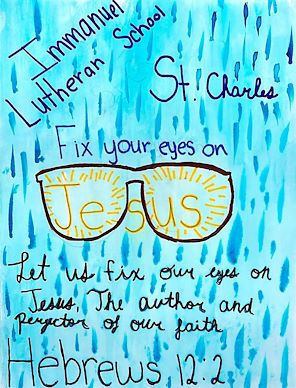 Immanuel
Lutheran School
St. Charles
Fix your eyes on
Jesus
Let us fix our eyes on
Jesus, The author and
Perfector of our faith
Hebrews 12:2